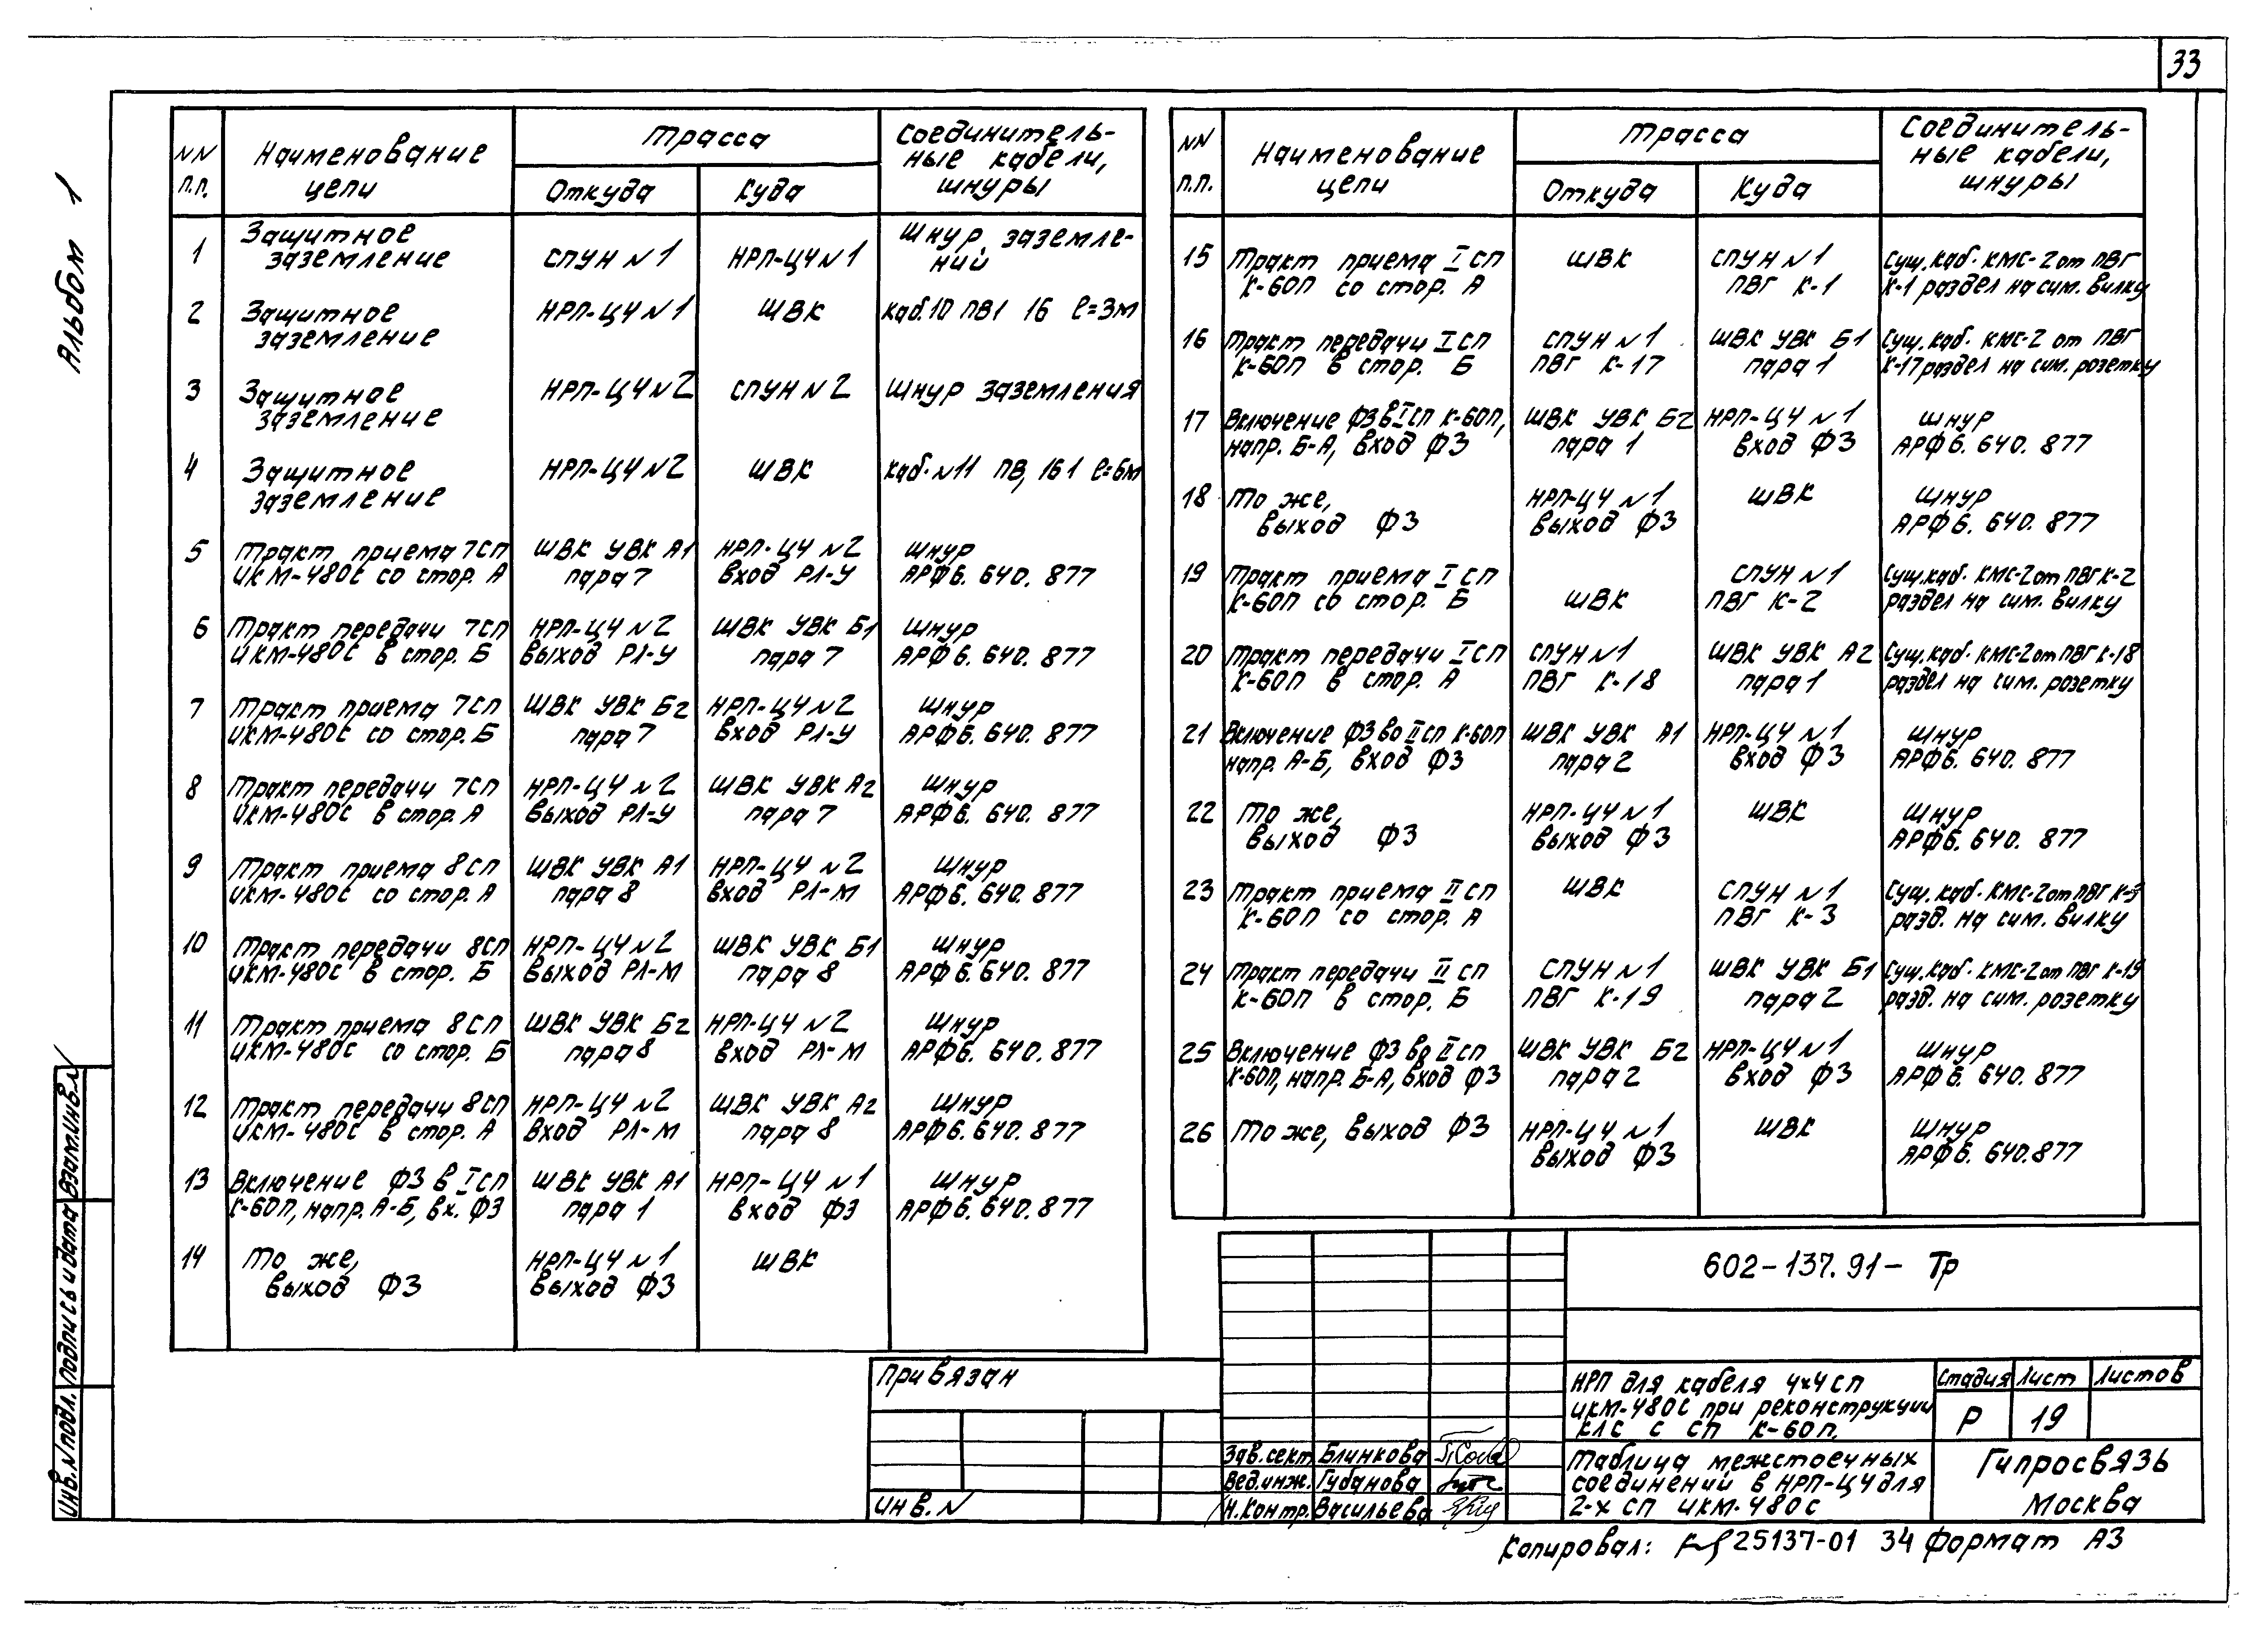 33
Альбом 1
NN п.п. Наименование цепи Трасса Откуда Куда Соединительные кабели, шнуры
1 Защитное заземление СПУН N1 НРП-Ц4 N1 Шнур заземлений
2 Защитное заземление НРП-Ц4 N1 ШВК каб.10 ПВ1 16 l=3м
3 Защитное заземление НРП-Ц4 N2 СПУН N2 Шнур заземления
4 Защитное заземление НРП-Ц4 N2 ШВК каб. N11 ПВ, 16 1 l=6м
5 Тракт приема 7СП ИКМ-480С со стор. А ШВК УВК А1 пара 7 НРП-Ц4 N2 вход РЛ-У Шнур АРФ6.640.877
6 Тракт передачи 7СП ИКМ-480С в стор. Б НРП-Ц4 N2 выход РЛ-У ШВК УВК Б1 пара 7 Шнур АРФ6.640.877
7 Тракт приема 7СП ИКМ-480С со стор. Б ШВК УВК Б2 пара 7 НРП-Ц4 N2 вход РЛ-У Шнур АРФ6.640.877
8 Тракт передачи 7СП ИКМ-480С в стор. А НРП-Ц4 N2 выход РЛ-У ШВК УВК А2 пара 7 Шнур АРФ6.640.877
9 Тракт приема 8СП ИКМ-480С со стор. А ШВК УВК А1 пара 8 НРП-Ц4 N2 вход РЛ-М Шнур АРФ6.640.877
10 Тракт передачи 8СП ИКМ-480С в стор. Б НРП-Ц4 N2 выход РЛ-М ШВК УВК Б1 пара 8 Шнур АРФ6.640.877
11 Тракт приема 8СП ИКМ-480С со стор. Б ШВК УВК Б2 пара 8 НРП-Ц4 N2 вход РЛ-М Шнур АРФ6.640.877
12 Тракт передачи 8СП ИКМ-480С в стор. А НРП-Ц4 N2 вход РЛ-М ШВК УВК А2 пара 8 Шнур АРФ6.640.877
13 Включение ФЗ в I СП К-60П, напр. А-Б, вх. ФЗ ШВК УВК А1 пара 1 НРП-Ц4 N1 вход ФЗ Шнур АРФ6.640.877
14 То же, выход ФЗ НРП-Ц4 N1 выход ФЗ ШВК
NN п.п. Наименование цепи Трасса Откуда Куда Соединительные кабели, шнуры
15 Тракт приема I СП К-60П со стор. А ШВК СПУН N1 ПВГ К-1 Сущ. каб. КМС-2 от ПВГ К-1 раздел на сим. вилку
16 Тракт передачи I СП К-60П в стор. Б СПУН N1 ПВГ К-17 ШВК УВК Б1 пара 1 Сущ. каб. КМС-2 от ПВГ К-17 раздел на сим. розетку
17 Включение ФЗ в I СП К-60П, напр. Б-А, вход ФЗ ШВК УВК Б2 пара 1 НРП-Ц4 N1 вход ФЗ Шнур АРФ6.640.877
18 То же, выход ФЗ НРП-Ц4 N1 выход ФЗ ШВК Шнур АРФ6.640.877
19 Тракт приема I СП К-60П со стор. Б ШВК СПУН N1 ПВГ К-2 Сущ. каб. КМС-2 от ПВГ К-2 раздел на сим. вилку
20 Тракт передачи I СП К-60П в стор. А СПУН N1 ПВГ К-18 ШВК УВК А2 пара 1 Сущ. каб. КМС-2 от ПВГ К-18 раздел на сим. розетку
21 Включение ФЗ во II СП К-60П напр. А-Б, вход ФЗ ШВК УВК А1 пара 2 НРП-Ц4 N1 вход ФЗ Шнур АРФ6.640.877
22 То же, выход ФЗ НРП-Ц4 N1 выход ФЗ ШВК Шнур АРФ6.640.877
23 Тракт приема II СП К-60П со стор. А ШВК СПУН N1 ПВГ К-3 Сущ. каб. КМС-2 от ПВГ К-3 разд. на сим. вилку
24 Тракт передачи II СП К-60П в стор. Б СПУН N1 ПВГ К-19 ШВК УВК Б1 пара 2 Сущ. каб. КМС-2 от ПВГ К-19 разд. на сим. розетку
25 Включение ФЗ во II СП К-60П, напр. Б-А, вход ФЗ ШВК УВК Б2 пара 2 НРП-Ц4 N1 вход ФЗ Шнур АРФ6.640.877
26 То же, выход ФЗ НРП-Ц4 N1 выход ФЗ ШВК Шнур АРФ6.640.877
Инв. N подл. Подпись и дата Взам. инв. N
Привязан
Инв. N
602-137.91- Тр
НРП для кабеля 4х4 СП
ИКМ-480С при реконструкции
КЛС с СП К-60П.
Стадия Лист Листов
Р 19
Зав. сект. Блинкова
Вед. инж. Губанова
Н. контр. Васильева
Таблица межстоечных
соединений в НРП-Ц4 для
2-х СП ИКМ-480С
Гипросвязь
Москва
Копировал: 25137-01 34 Формат А3